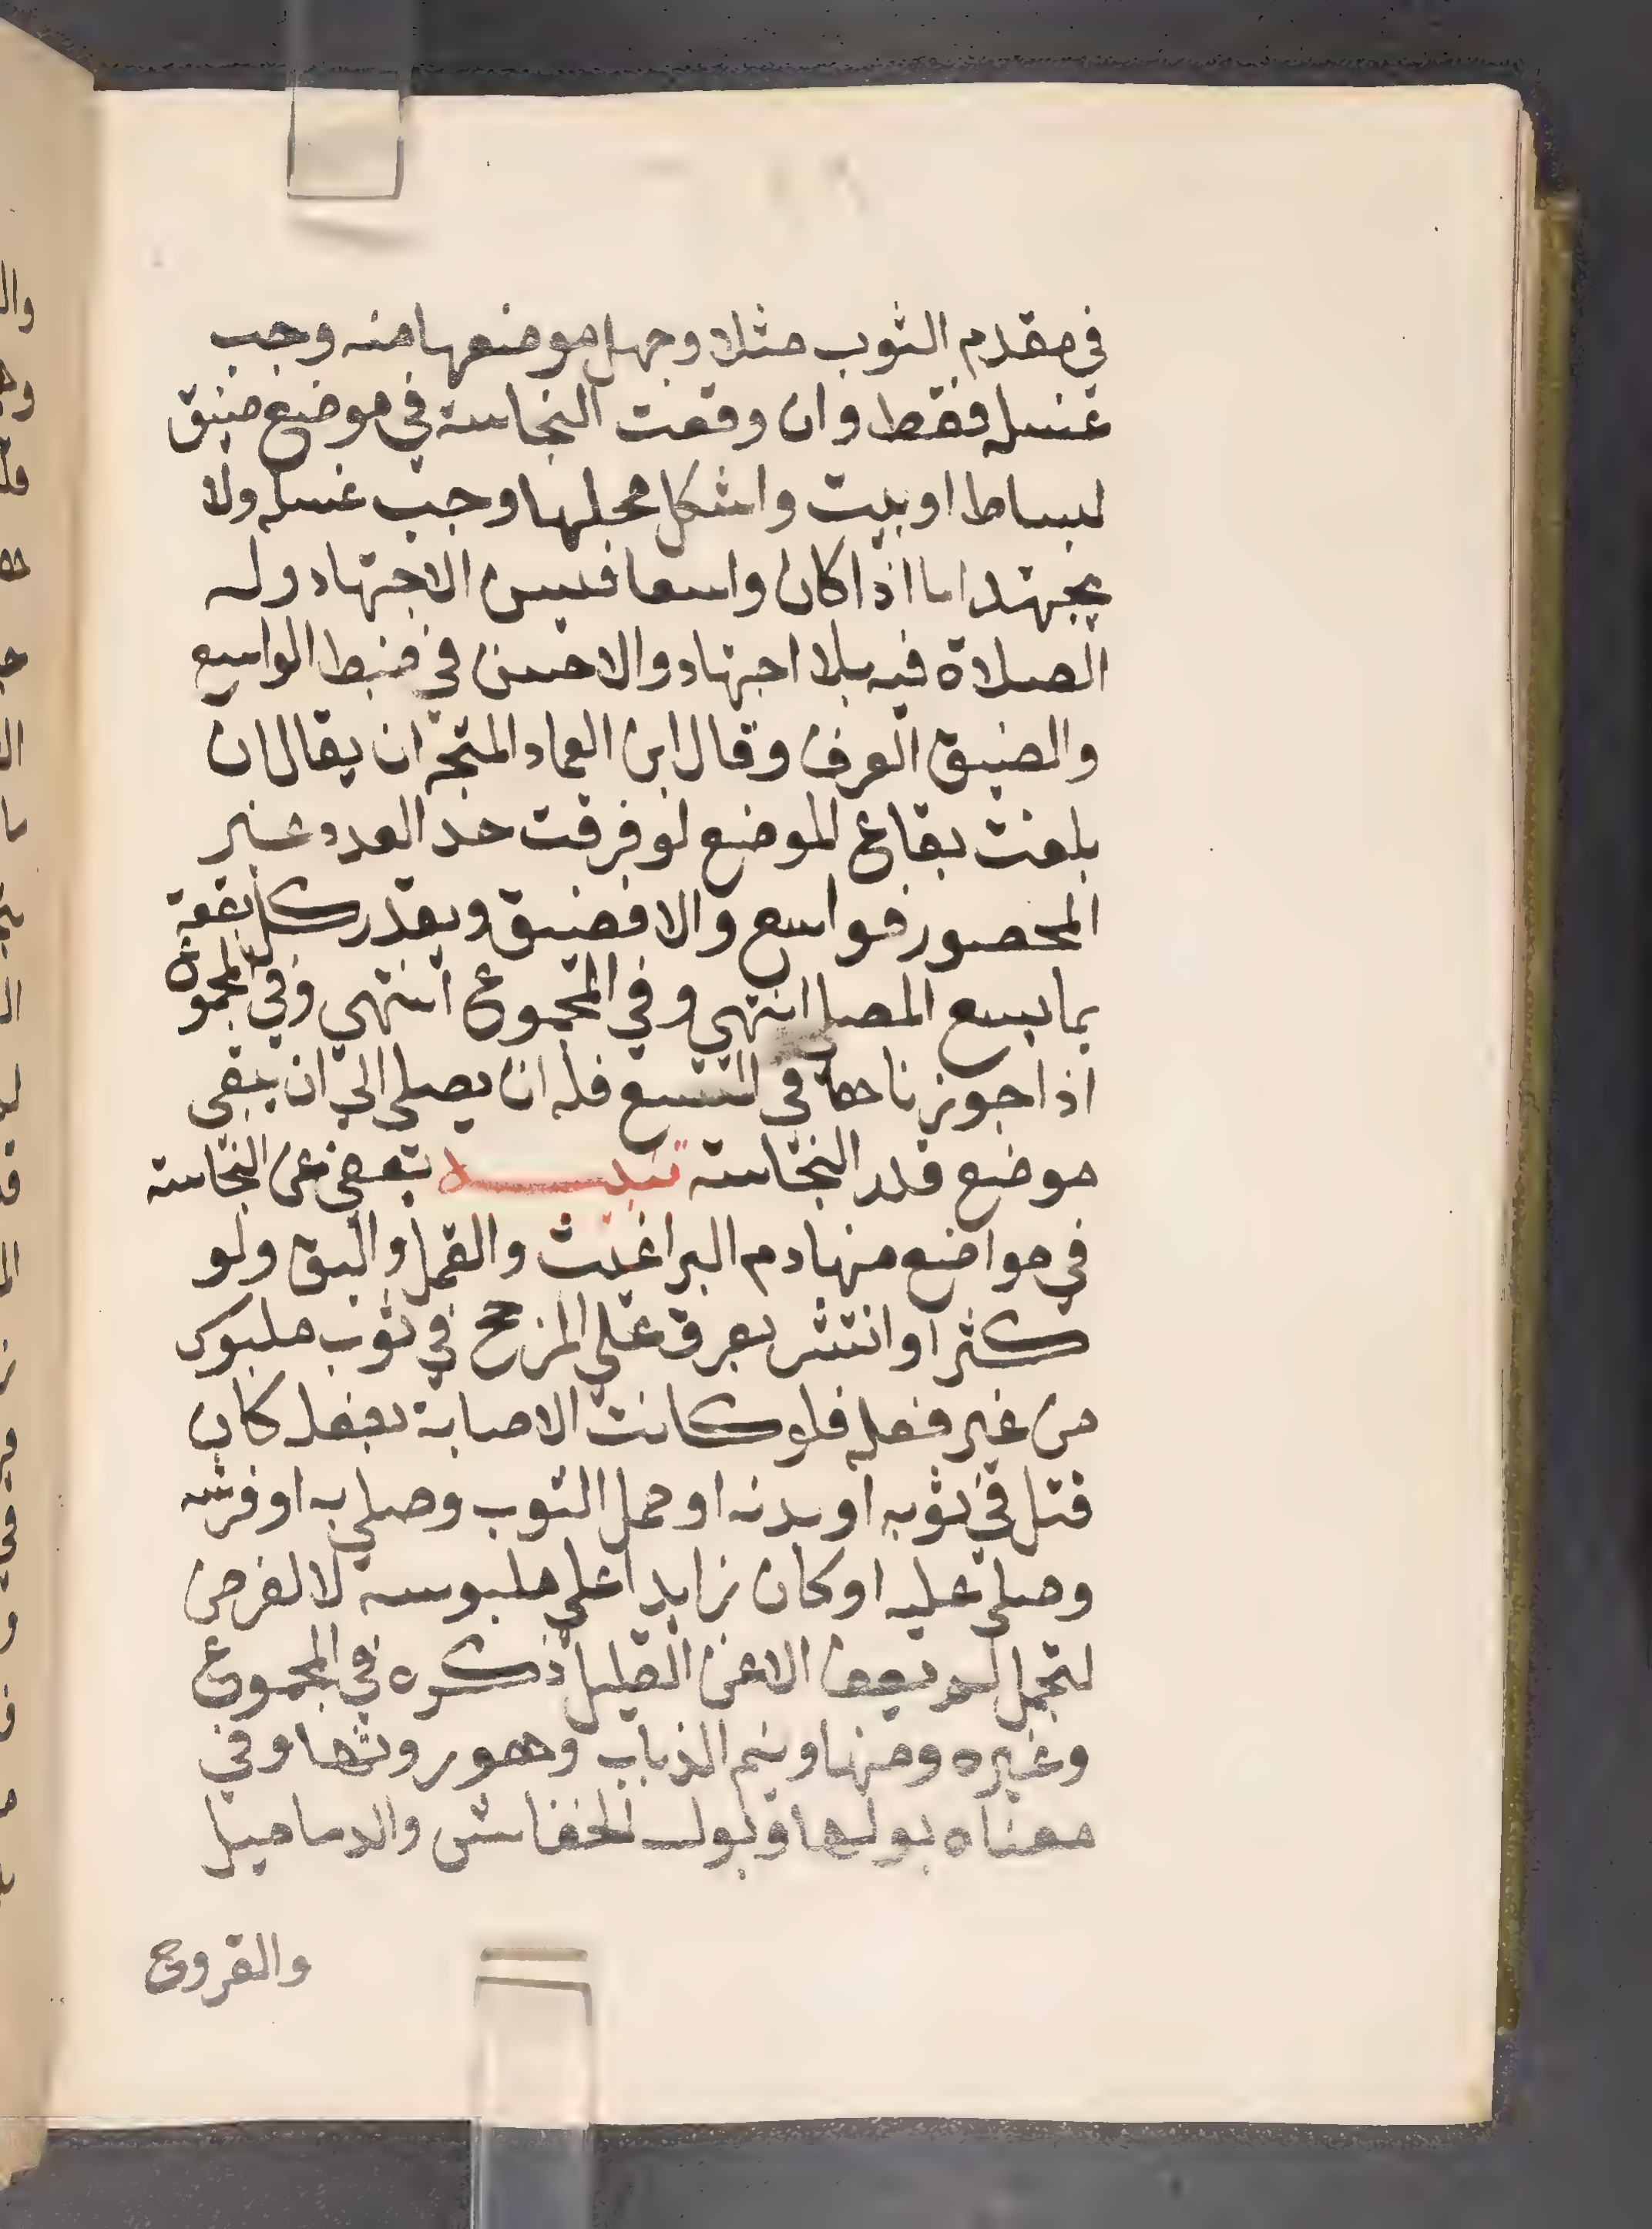 في مقدم الثوب مثلا وجهل موضعها منه وجب
غسله فقط وان وقعت النجاسة في موضع ضيق
لبساط او بيت واشكل محلها وجب غسله ولا
يجتهد اما اذا كان واسعا فيسن الاجتهاد وله
الصلاة فيه بلا اجتهاد والاحسن في ضبط الواسع
والضيق العرف وقال ابن العماد المتجه ان يقال ان
بلغت بقاع الموضع لو فرقت حد العدد غير
المحصور فواسع والا فضيق ويقدر كل بقعة
بما يسع المصلي انتهي وفي المجموع انتهي وفي المجموع
اذا جوزنا في المتسع فله ان يصلي الي ان يبقي
موضع قدر النجاسة تنبيه يعفي عن النجاسة
في مواضع منها دم البراغيث والقمل والبق ولو
كثر او انتشر بعرق علي المرجح في ثوب ملبوس
من غير فعله فلو كانت الاصابة بفعله كان
قتل في ثوبه او بدنه او حمل الثوب وصلي به او فرشه
وصلي عليه او كان زايدا علي ملبوسه لا لغرض
لتجمل لم يعف الا عن القليل ذكره في المجموع
وغيره ومنها ونيم الذباب وهو روثها وفي
معناه بولها وبول الخفاش والدماميل
والقروح